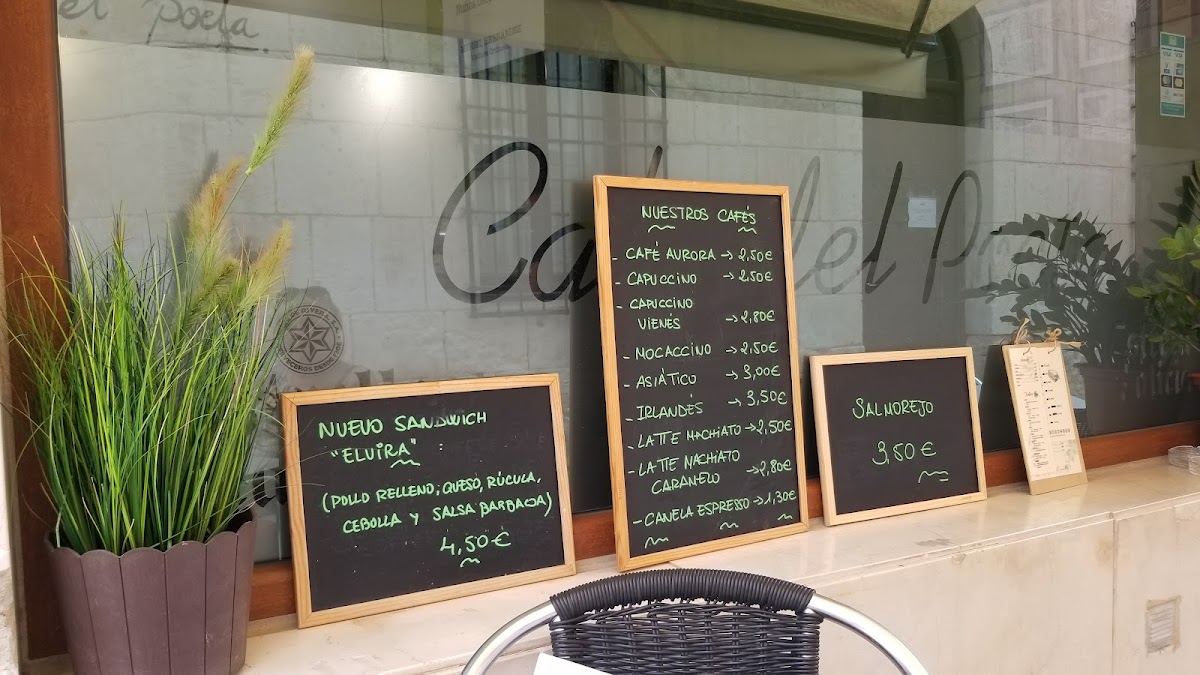 el poeta
Café del Poeta
NUEVO SANDWICH
"ELVIRA":
(POLLO RELLENO; QUESO, RÚCULA,
CEBOLLA Y SALSA BARBACOA)
4,50€
NUESTROS CAFÉS
- CAFÉ AURORA → 2,50€
- CAPUCCINO → 2,50€
- CAPUCCINO
VIENÉS → 2,80€
- MOCACCINO → 2,50€
- ASIÁTICO → 3,00€
- IRLANDÉS → 3,50€
- LATTE MACHIATO → 2,50€
- LATTE MACHIATO
CARAMELO → 2,80€
- CANELA ESPRESSO → 1,30€
SALMOREJO
3,50€